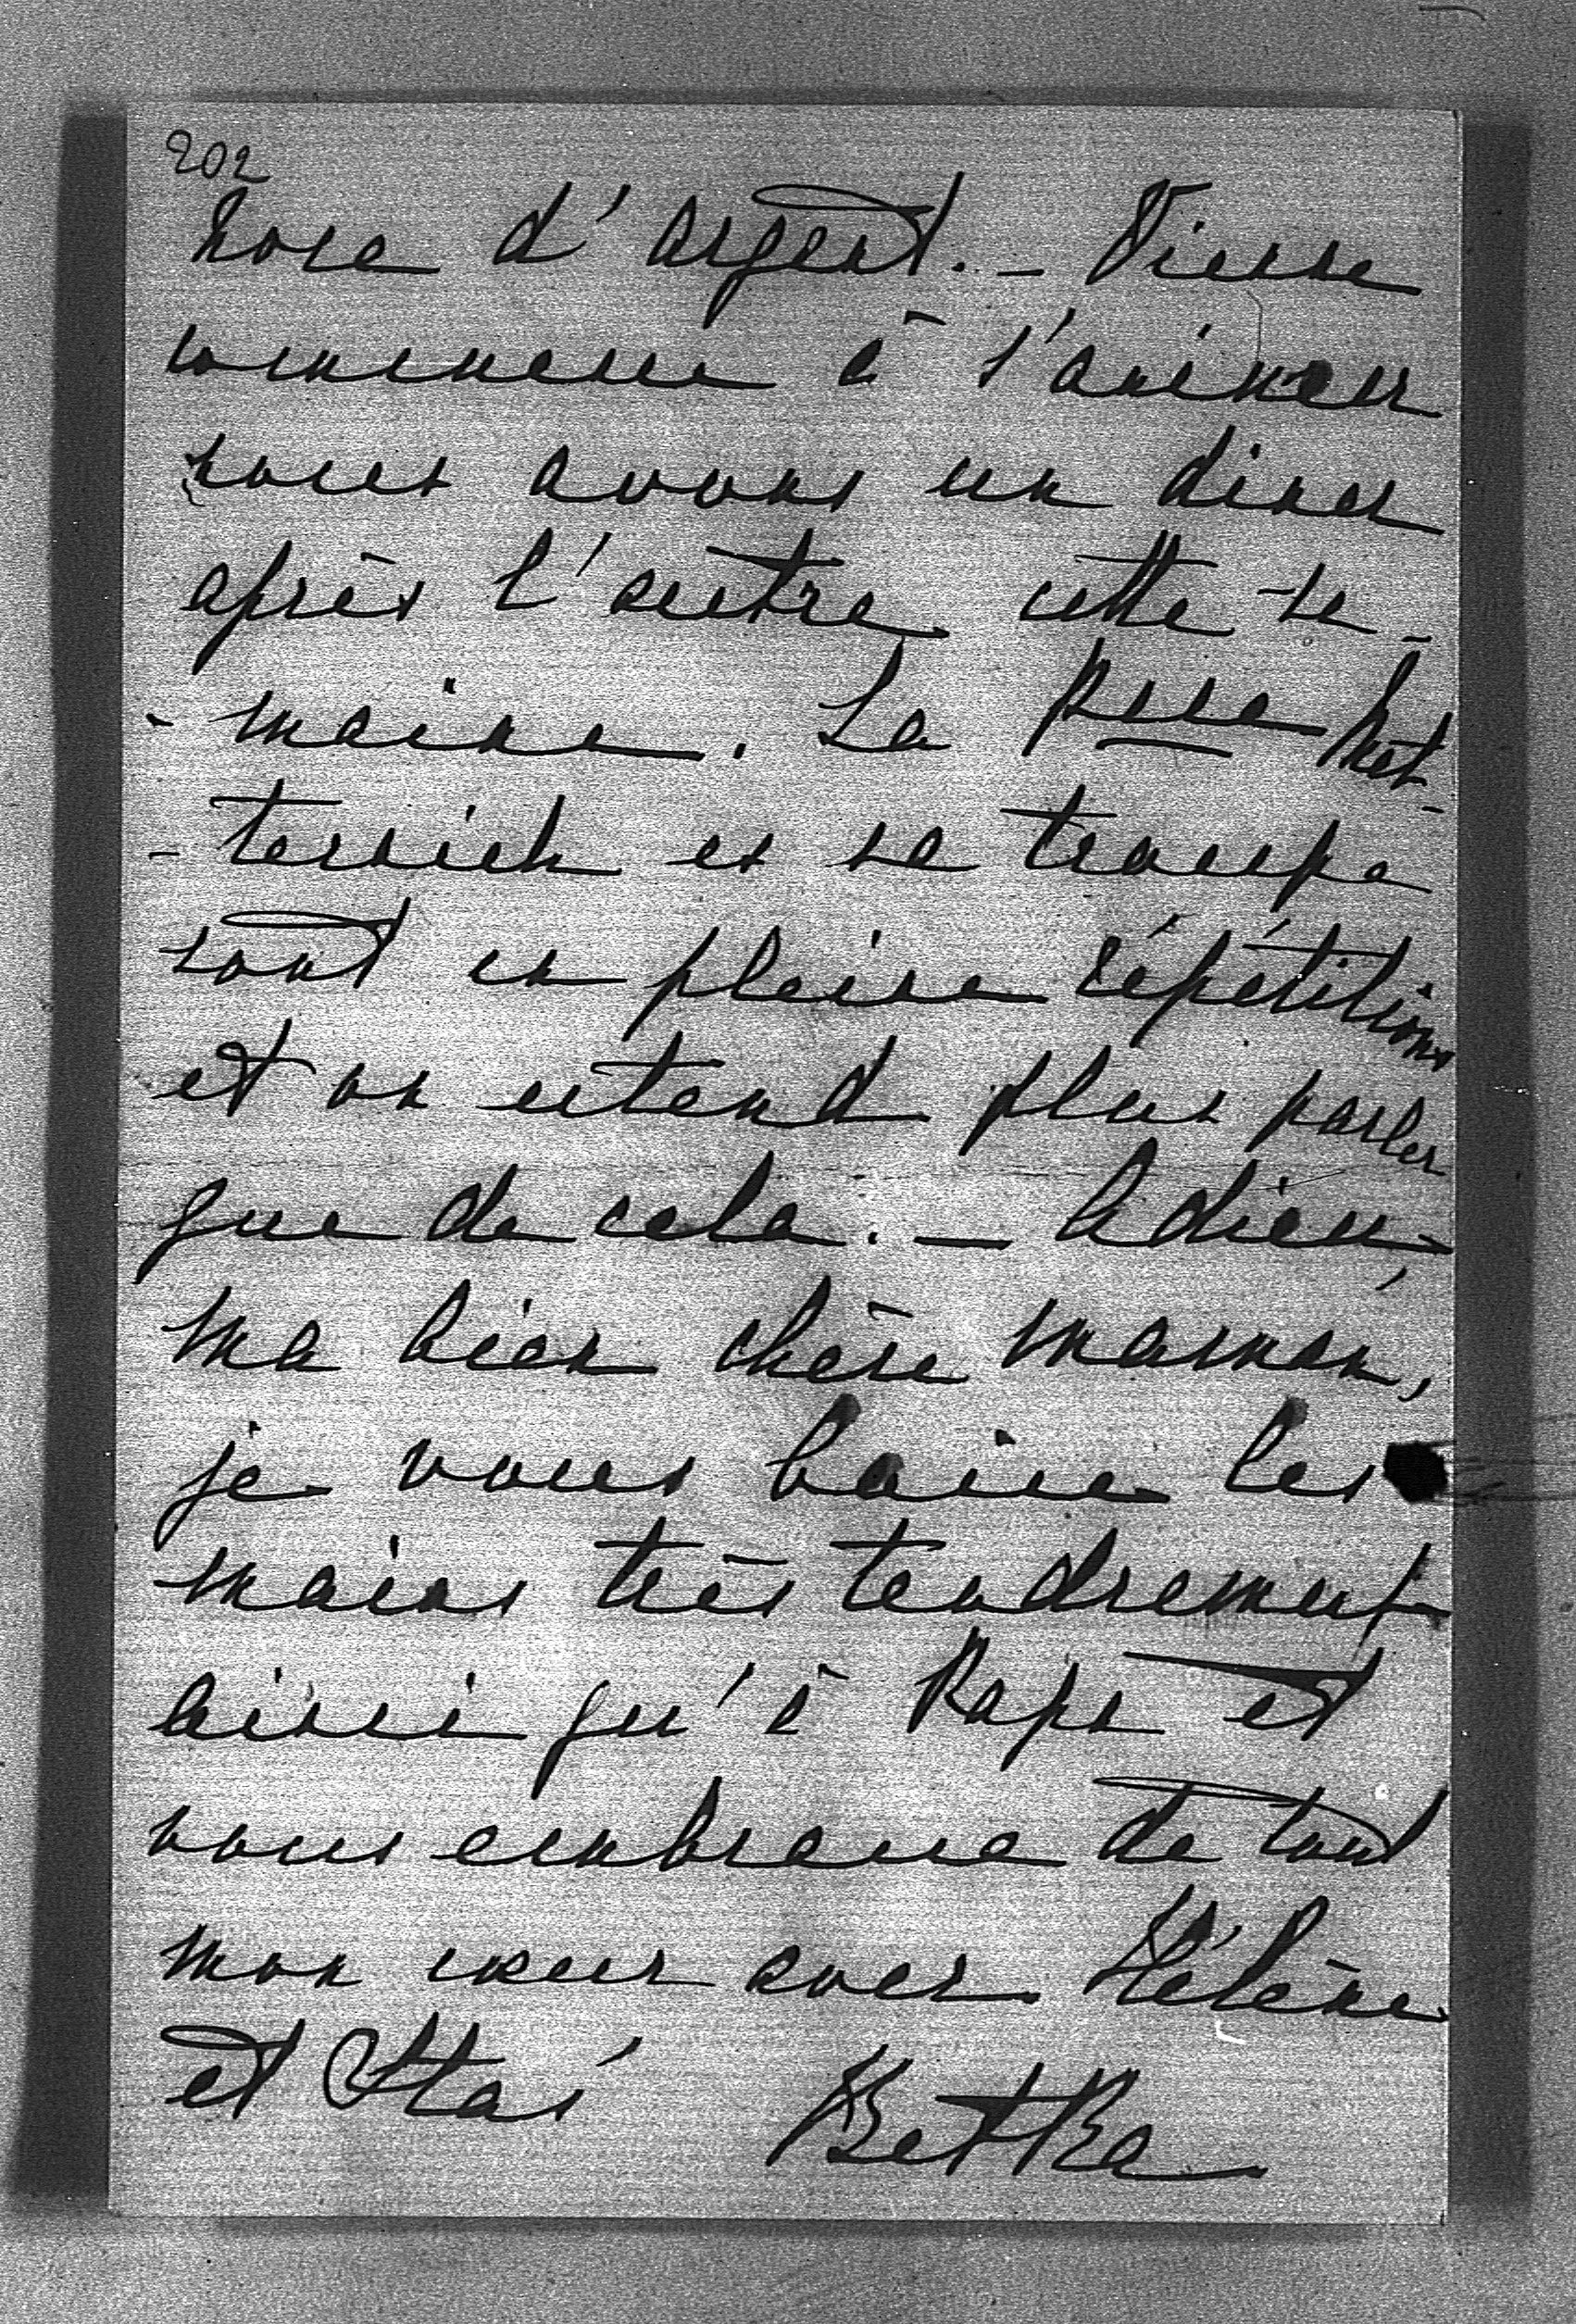 202
noce d'argent. - Vienne
commence à s'animer
nous avons un diner
après l'autre cette se-
- maine. La Psse Met-
- ternich et sa troupe
sont en pleine répétitions
et on entend plus parler
que de cela. - Adieu,
ma bien chère maman,
je vous baise les
mains très tendrement
ainsi qu'à Papa et
vous embrasse de tout
mon cœur avec Hélène
et Stas'
Betka